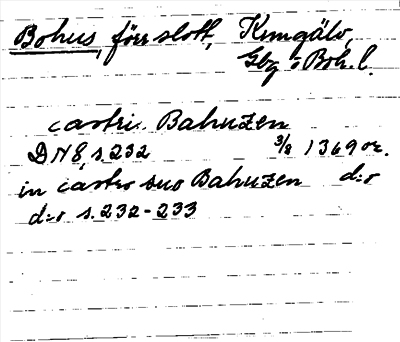 Bohus, förr slott, Kungälv,
Gbg o Boh. l.
castri Bahuzen
DN 8, s. 232 3/8 1369 or.
in castro suo Bahuzen d:o
d:o s. 232-233